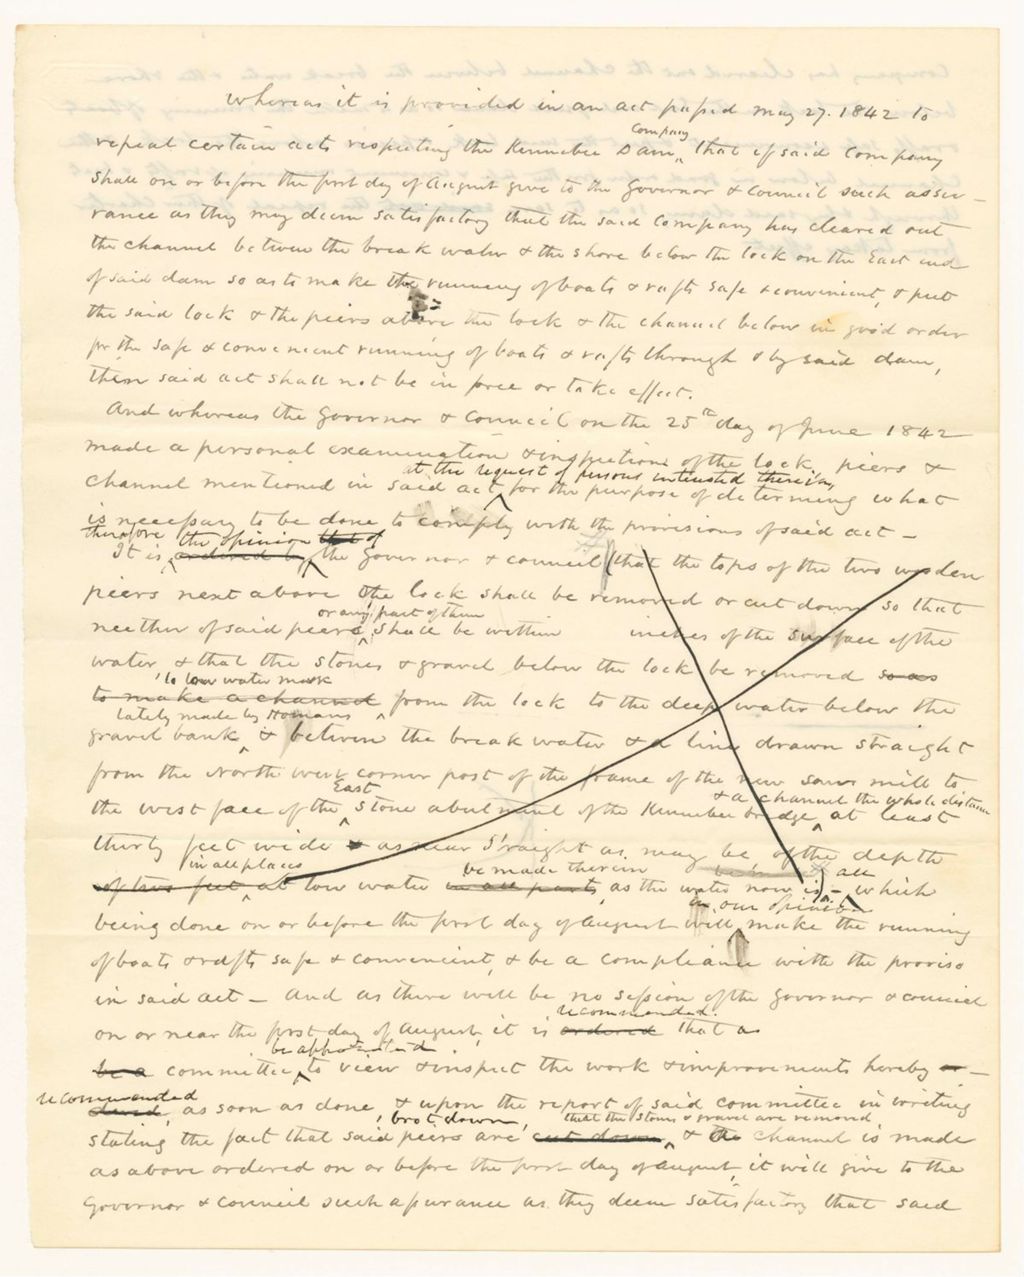 Whereas it is provided in an act passed May 27. 1842 to
repeal certain acts respecting the Kennebec Dam Company, that if said Company
shall on or before the first day of August give to the Governor & Council such assu-
rance as they may deem satisfactory that the said Company has cleared out
the channel between the break water & the shore below the lock on the East end
of said dam so as to make the running of boats & rafts safe & convenient, & put
the said lock & the piers above the lock & the channel below in good order
for the safe & convenient running of boats & rafts through & by said dam,
then said act shall not be in force or take effect.
And whereas the Governor & Council on the 25th day of June 1842
made a personal examination & inspection of the lock, piers &
at the request of persons interested therein,
channel mentioned in said act for the purpose of determing what
is necessary to be done to comply with the provisions of said act —
therefore the opinion that of
It is ordered by the Governor & Council (that the tops of the two wooden
piers next above the lock shall be removed or cut down so that
or any part of them
neither of said peers shall be within inches of the surface of the
water, & that the stones & gravel below the lock be removed so as
to low water mark
to make a channel from the lock to the deep water below the
lately made by
gravel bank & between the break water & a line drawn straight
from the North west corner post of the frame of the new saw mill to
East & a channel the whole distance
the west face of the stone abutment of the Kennebec bridge, at least
thirty feet wide & as near straight as may be, of the depth
in all places be made therein all
of two feet at low water in all parts, as the water now is) — which
in our opinion
being done on or before the first day of August will make the running
of boats & rafts safe & convenient, & be a compliance with the proviso
in said act — And as there will be no session of the Governor & Council
recommended
on or near the first day of August, it is ordered that a
be appointed
be a committee to view & inspect the work & improvements hereby —
recommended
dered, as soon as done, & upon the report of said committee in writing
, brot down, that the stones & gravel are removed
stating the fact that said peers are cut down, & the channel is made
as above ordered on or before the first day of August, it will give to the
Governor & Council such assurance as they deem satisfactory that said